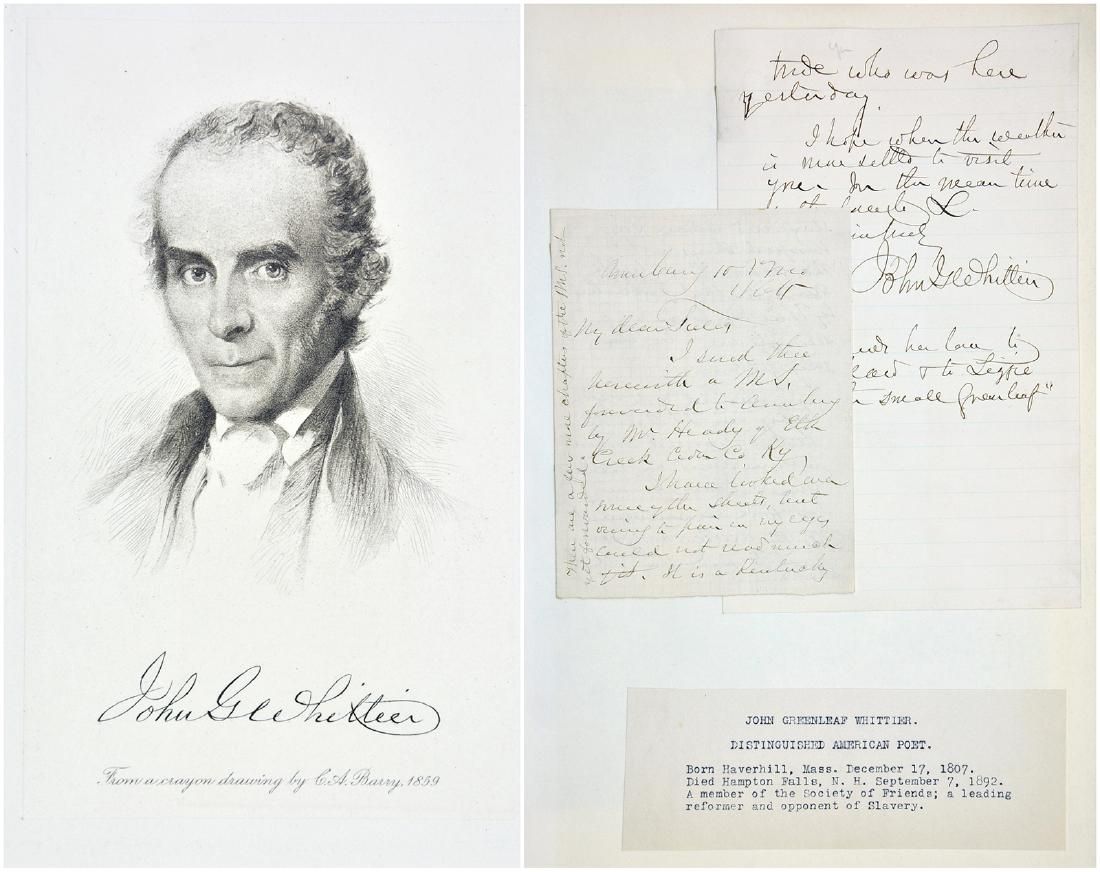 John G Whittier
From a crayon drawing by C. A. Barry, 1859
who was here
yesterday.
I hope when the weather
is more settled to visit
In the mean time
John G Whittier
her love to
& to Lizzie
small Greenleaf"
Amesbury 10
My dear
I send thee
herewith a M.S.
forwarded to Amesbury
by Mr. Heady of Elk
Creek Co Ky
I have looked over
some of the sheets, but
owing to pain in my eyes
could not read much
of it. It is a Kentucky
There are a few more chapters of the M.S. not
yet forwarded.
JOHN GREENLEAF WHITTIER.
DISTINGUISHED AMERICAN POET.
Born Haverhill, Mass. December 17, 1807.
Died Hampton Falls, N. H. September 7, 1892.
A member of the Society of Friends; a leading
reformer and opponent of Slavery.